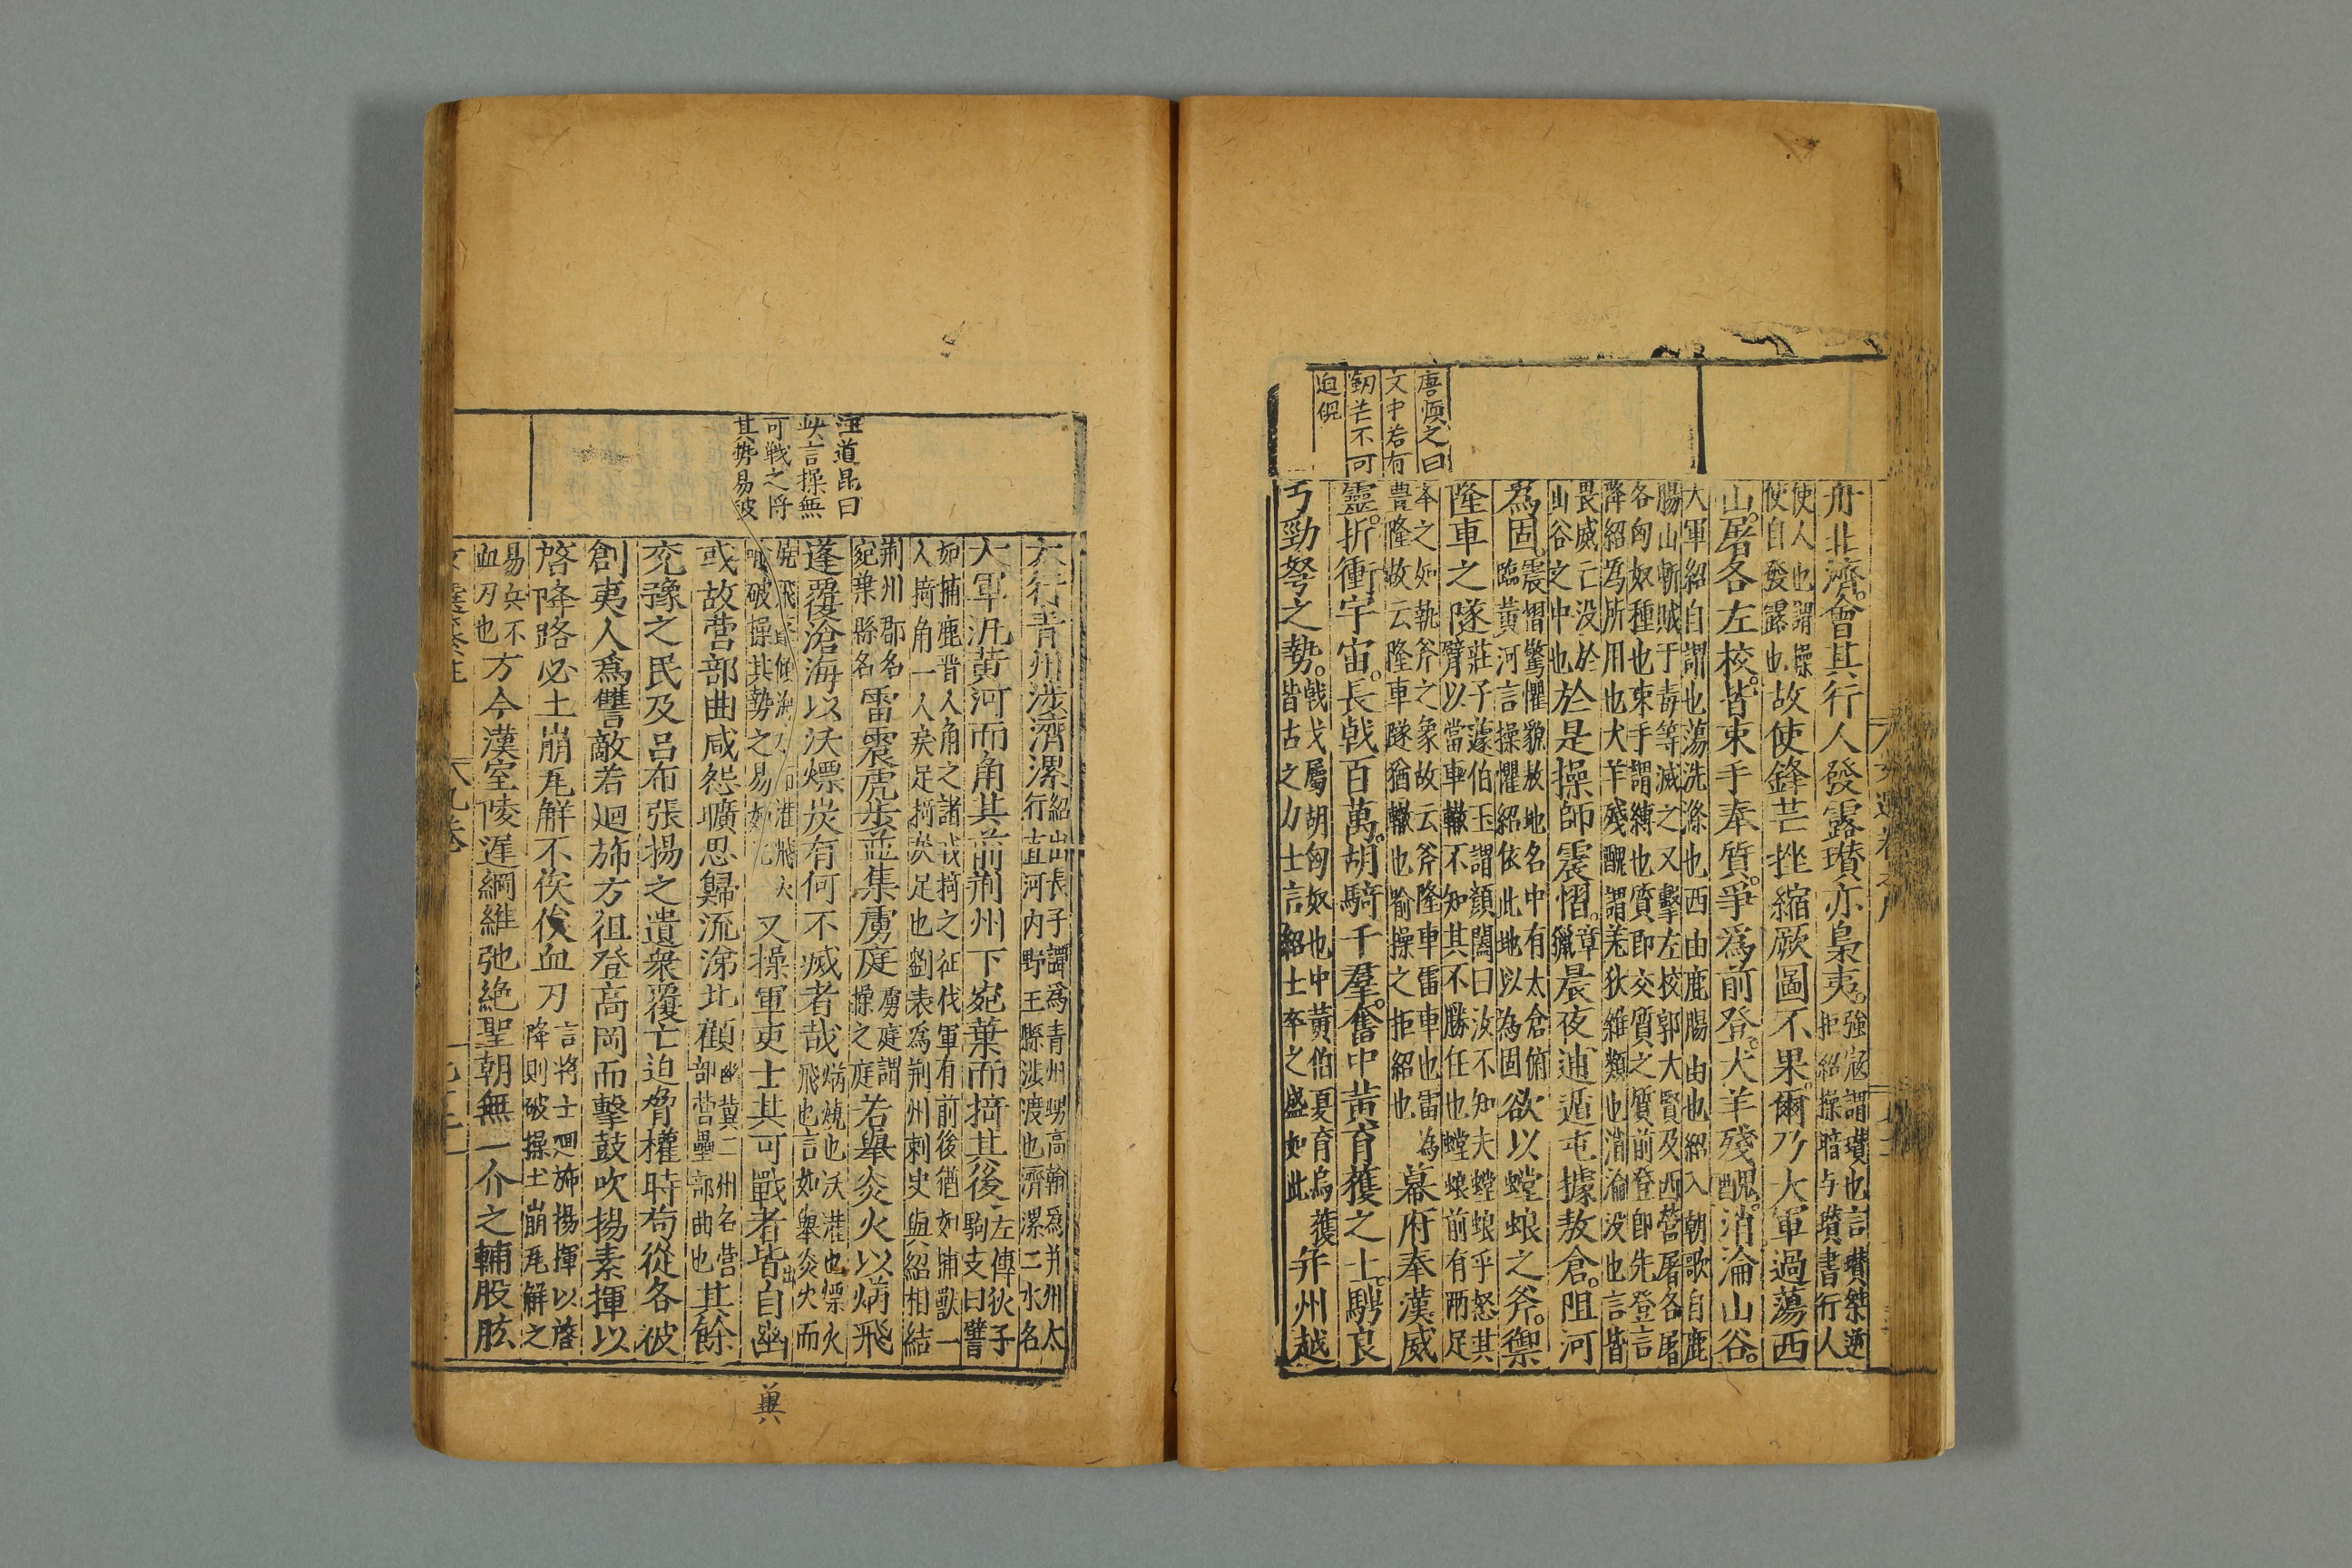 唐順之曰
文中若有
劒芒不可
迫倪
舟北濟會其行人發露瓚亦梟夷強冦謂瓚也言瓚桀逆
拒紹操暗与瓚書行人
使人也謂操
使自發露也故使鋒芒挫縮厥圖不果爾乃大軍過蕩西
山屠各左校皆束手奉質爭爲前登犬羊殘醜消淪山谷
大軍紹自謂也蕩洗滌也西由鹿腸由也紹入朝歌自鹿
腸山斬賊于毒等滅之又擊左校郭大賢及西營屠各屠
各匈奴種也束手謂縛也質即交質之質前登即先登言
降紹爲所用也犬羊殘醜謂羌狄維類也消淪没也言皆
畏威亡没於
山谷之中也於是操師震慴晨夜逋遁屯據敖倉阻河
爲固震慴驚懼貌敖地名中有太倉俯
臨黄河言操懼紹依此地以為固欲以螳蜋之斧禦
隆車之隧莊子蘧伯玉謂顔闔曰汝不知夫螳蜋乎怒其
臂以當車轍不知其不勝任也螳蜋前有兩足
本之如執斧之象故云斧隆車雷車也雷為
豊隆故云隆車隧猶轍也喻操之拒紹也幕府奉漢威
靈折衝宇宙長戟百萬胡騎千羣奮中黄育獲之士騁良
弓勁弩之勢戟戈屬胡匈奴也中黄伯夏育烏獲
皆古之力士言紹士卒之盛如此并州越
汪道昆曰
此言操無
可戰之將
其勢易破
太行青州涉濟漯紹出長子謂爲青州甥高翰爲并州太
行直河内野王縣涉渡也濟漯二水名
大軍汎黄河而角其前荆州下宛葉而掎其後左傳狄子
駒支曰譬
如捕鹿晋人角之諸戎掎之征伐軍有前後猶如捕獸一
人掎角一人戾足掎戾足也劉表爲荆州刺史與紹相結
荆州郡名
宛葉縣名雷震虎步並集虜庭虜庭謂
操之庭若舉炎火以焫飛
蓬覆滄海以沃熛炭有何不滅者哉焫燒也沃灌也熛火
飛也言如舉炎火而
喻破操其勢之易如又操軍吏士其可戰者皆出自幽
冀
或故營部曲咸怨曠思歸流涕北顧幽冀二州名營
部營壘部曲也其餘
兖豫之民及呂布張揚之遺衆覆亡迫脅權時苟從各被
創夷人爲讐敵若迴斾方徂登高岡而擊鼓吹揚素揮以
啓降路必土崩瓦解不俟血刃言將士迴斾揚揮以啓
降則破操土崩瓦解之
易兵不
血刃也方今漢室陵遲綱維弛絶聖朝無一介之輔股肱